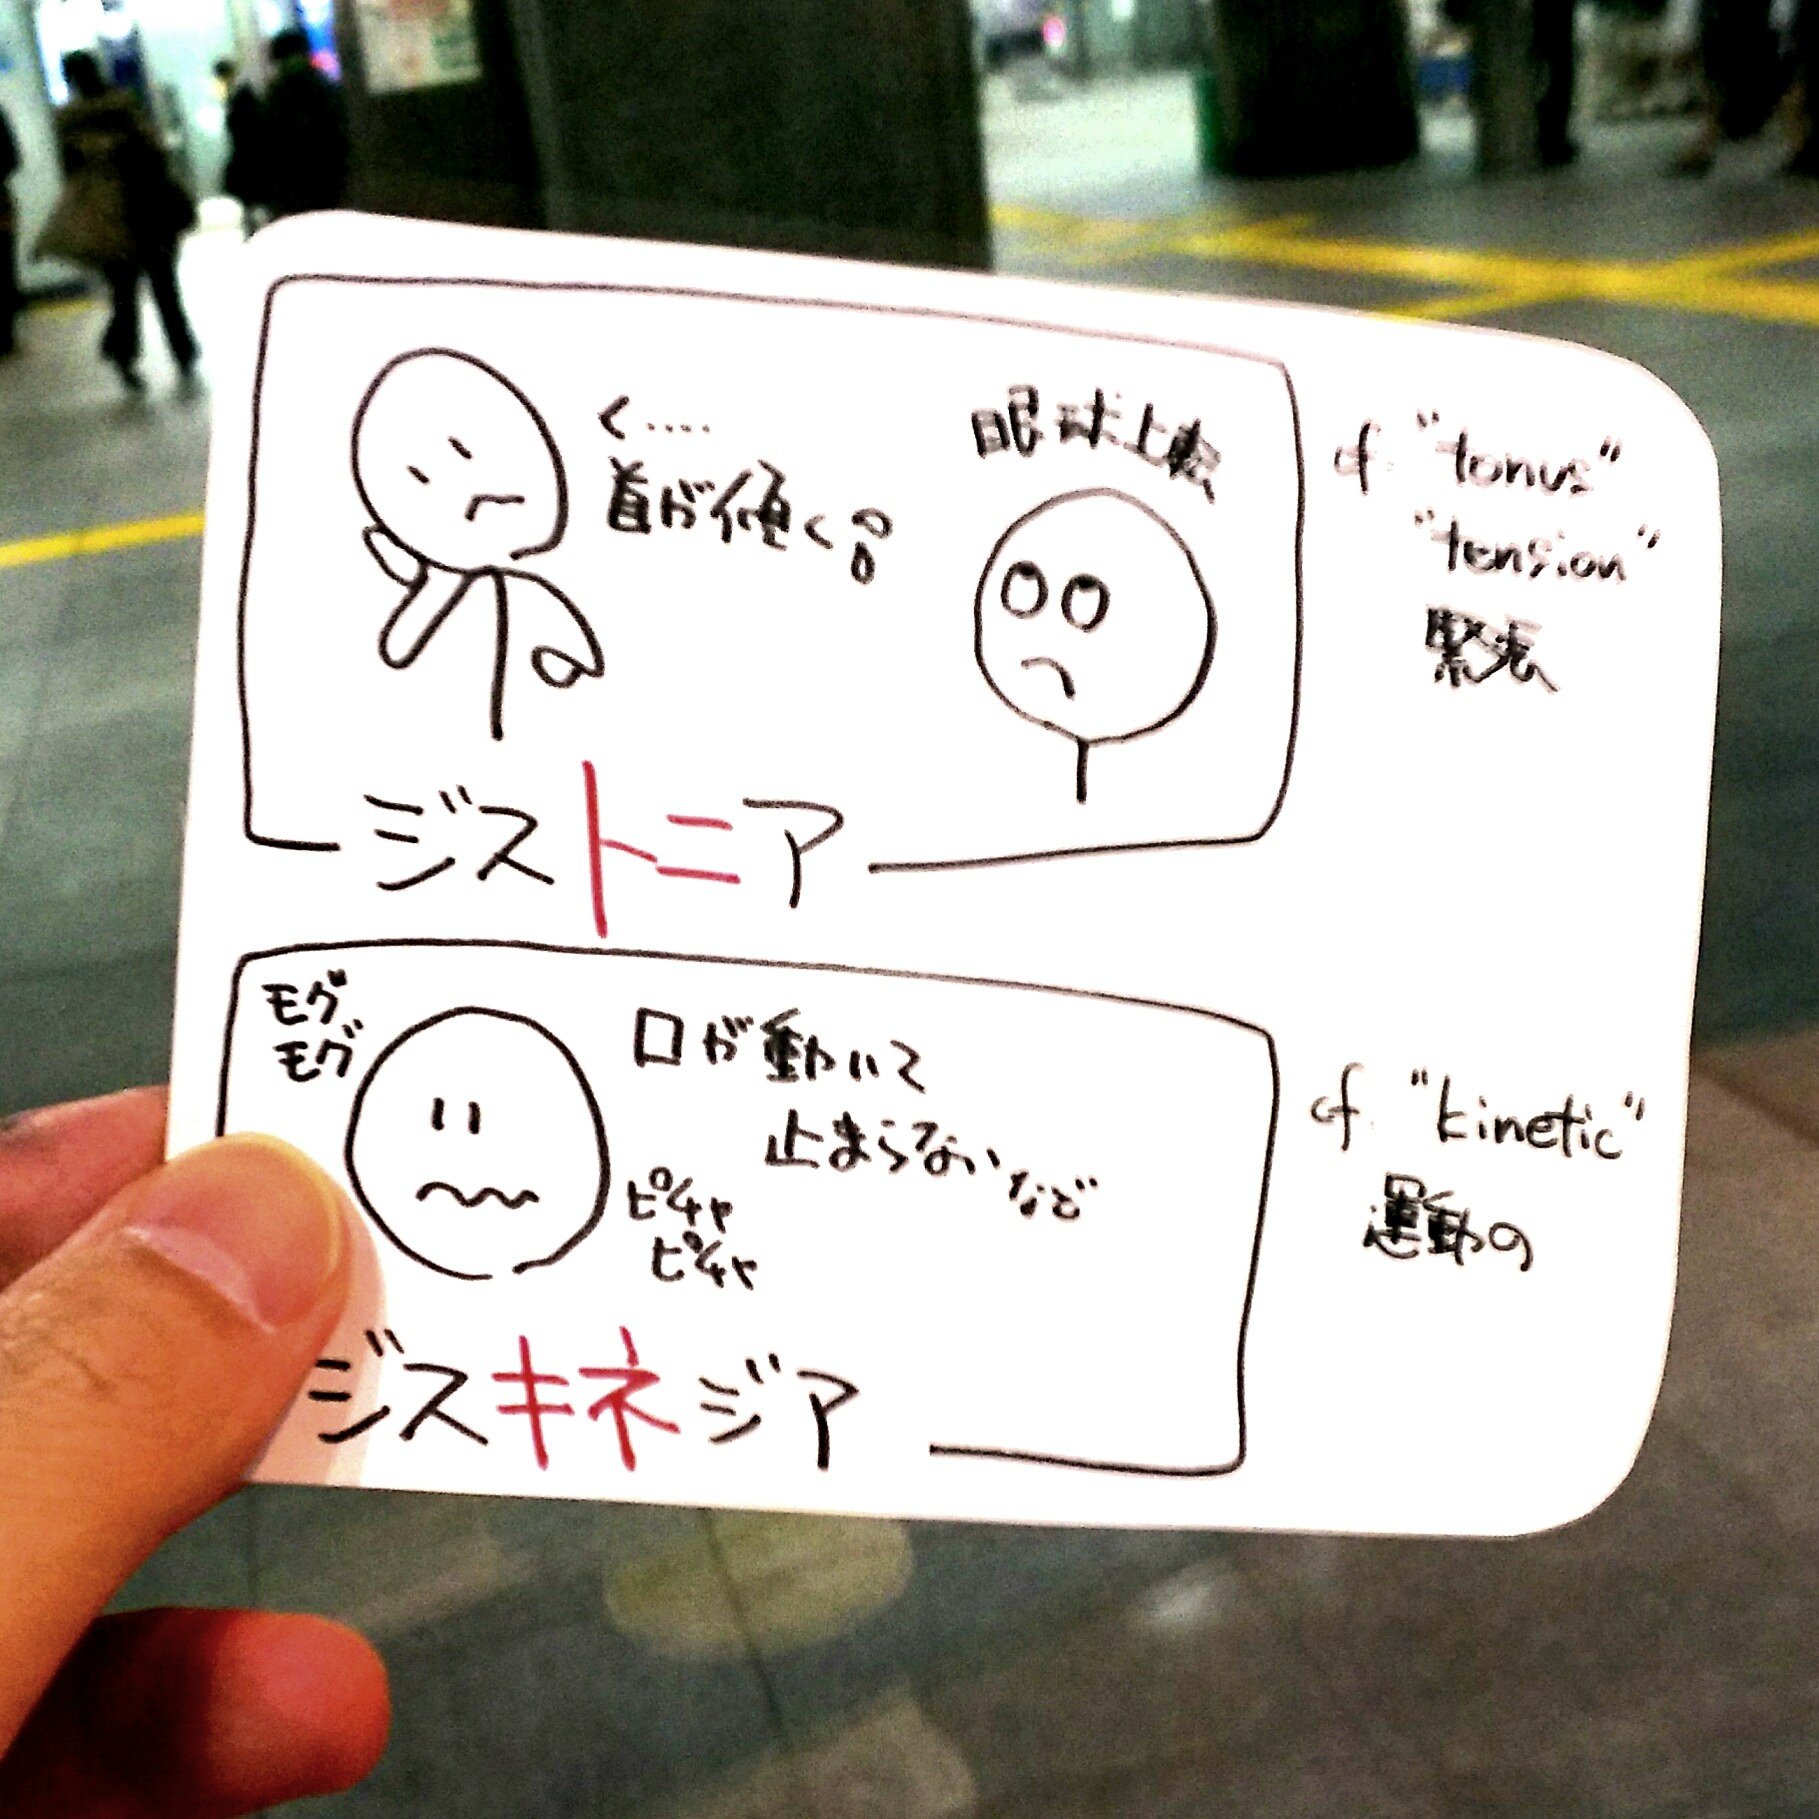 く....
首が傾く
眼球上転
cf. "tonus"
"tension"
緊張
ジストニア
モグ
モグ
口が動いて
止まらないなど
ピチャ
ピチャ
cf. "kinetic"
運動の
ジスキネジア